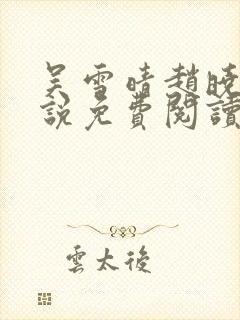 吴雪晴趙曉
說免費閱讀
雲太後